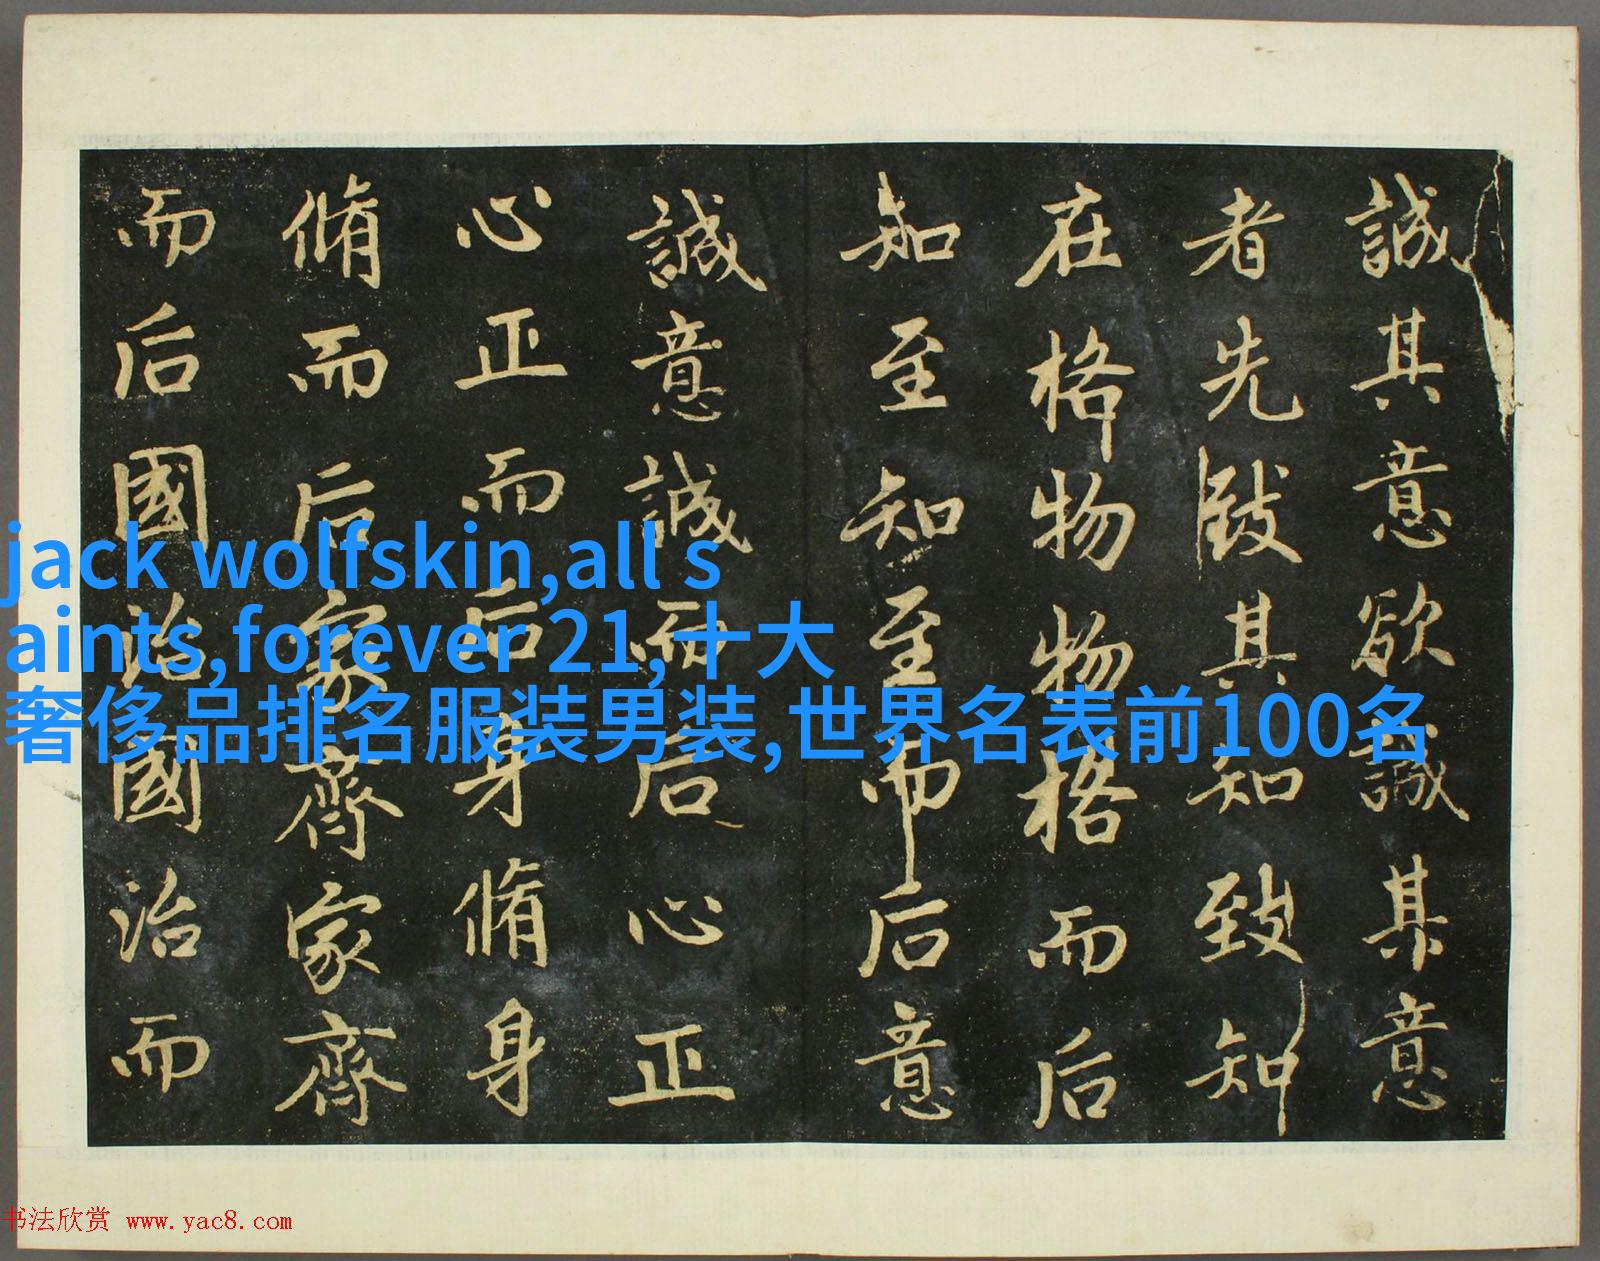 誠其意欲誠其意
者先致其知致知
在格物物格而后
知至知至而后意
誠意誠而后心正
心正而后身脩身
脩而后家齊家齊
而后國治國治而
jack wolfskin,all s
aints,forever 21,十大
奢侈品排名服装男装,世界名表前100名
书法欣赏 www.yac8.com